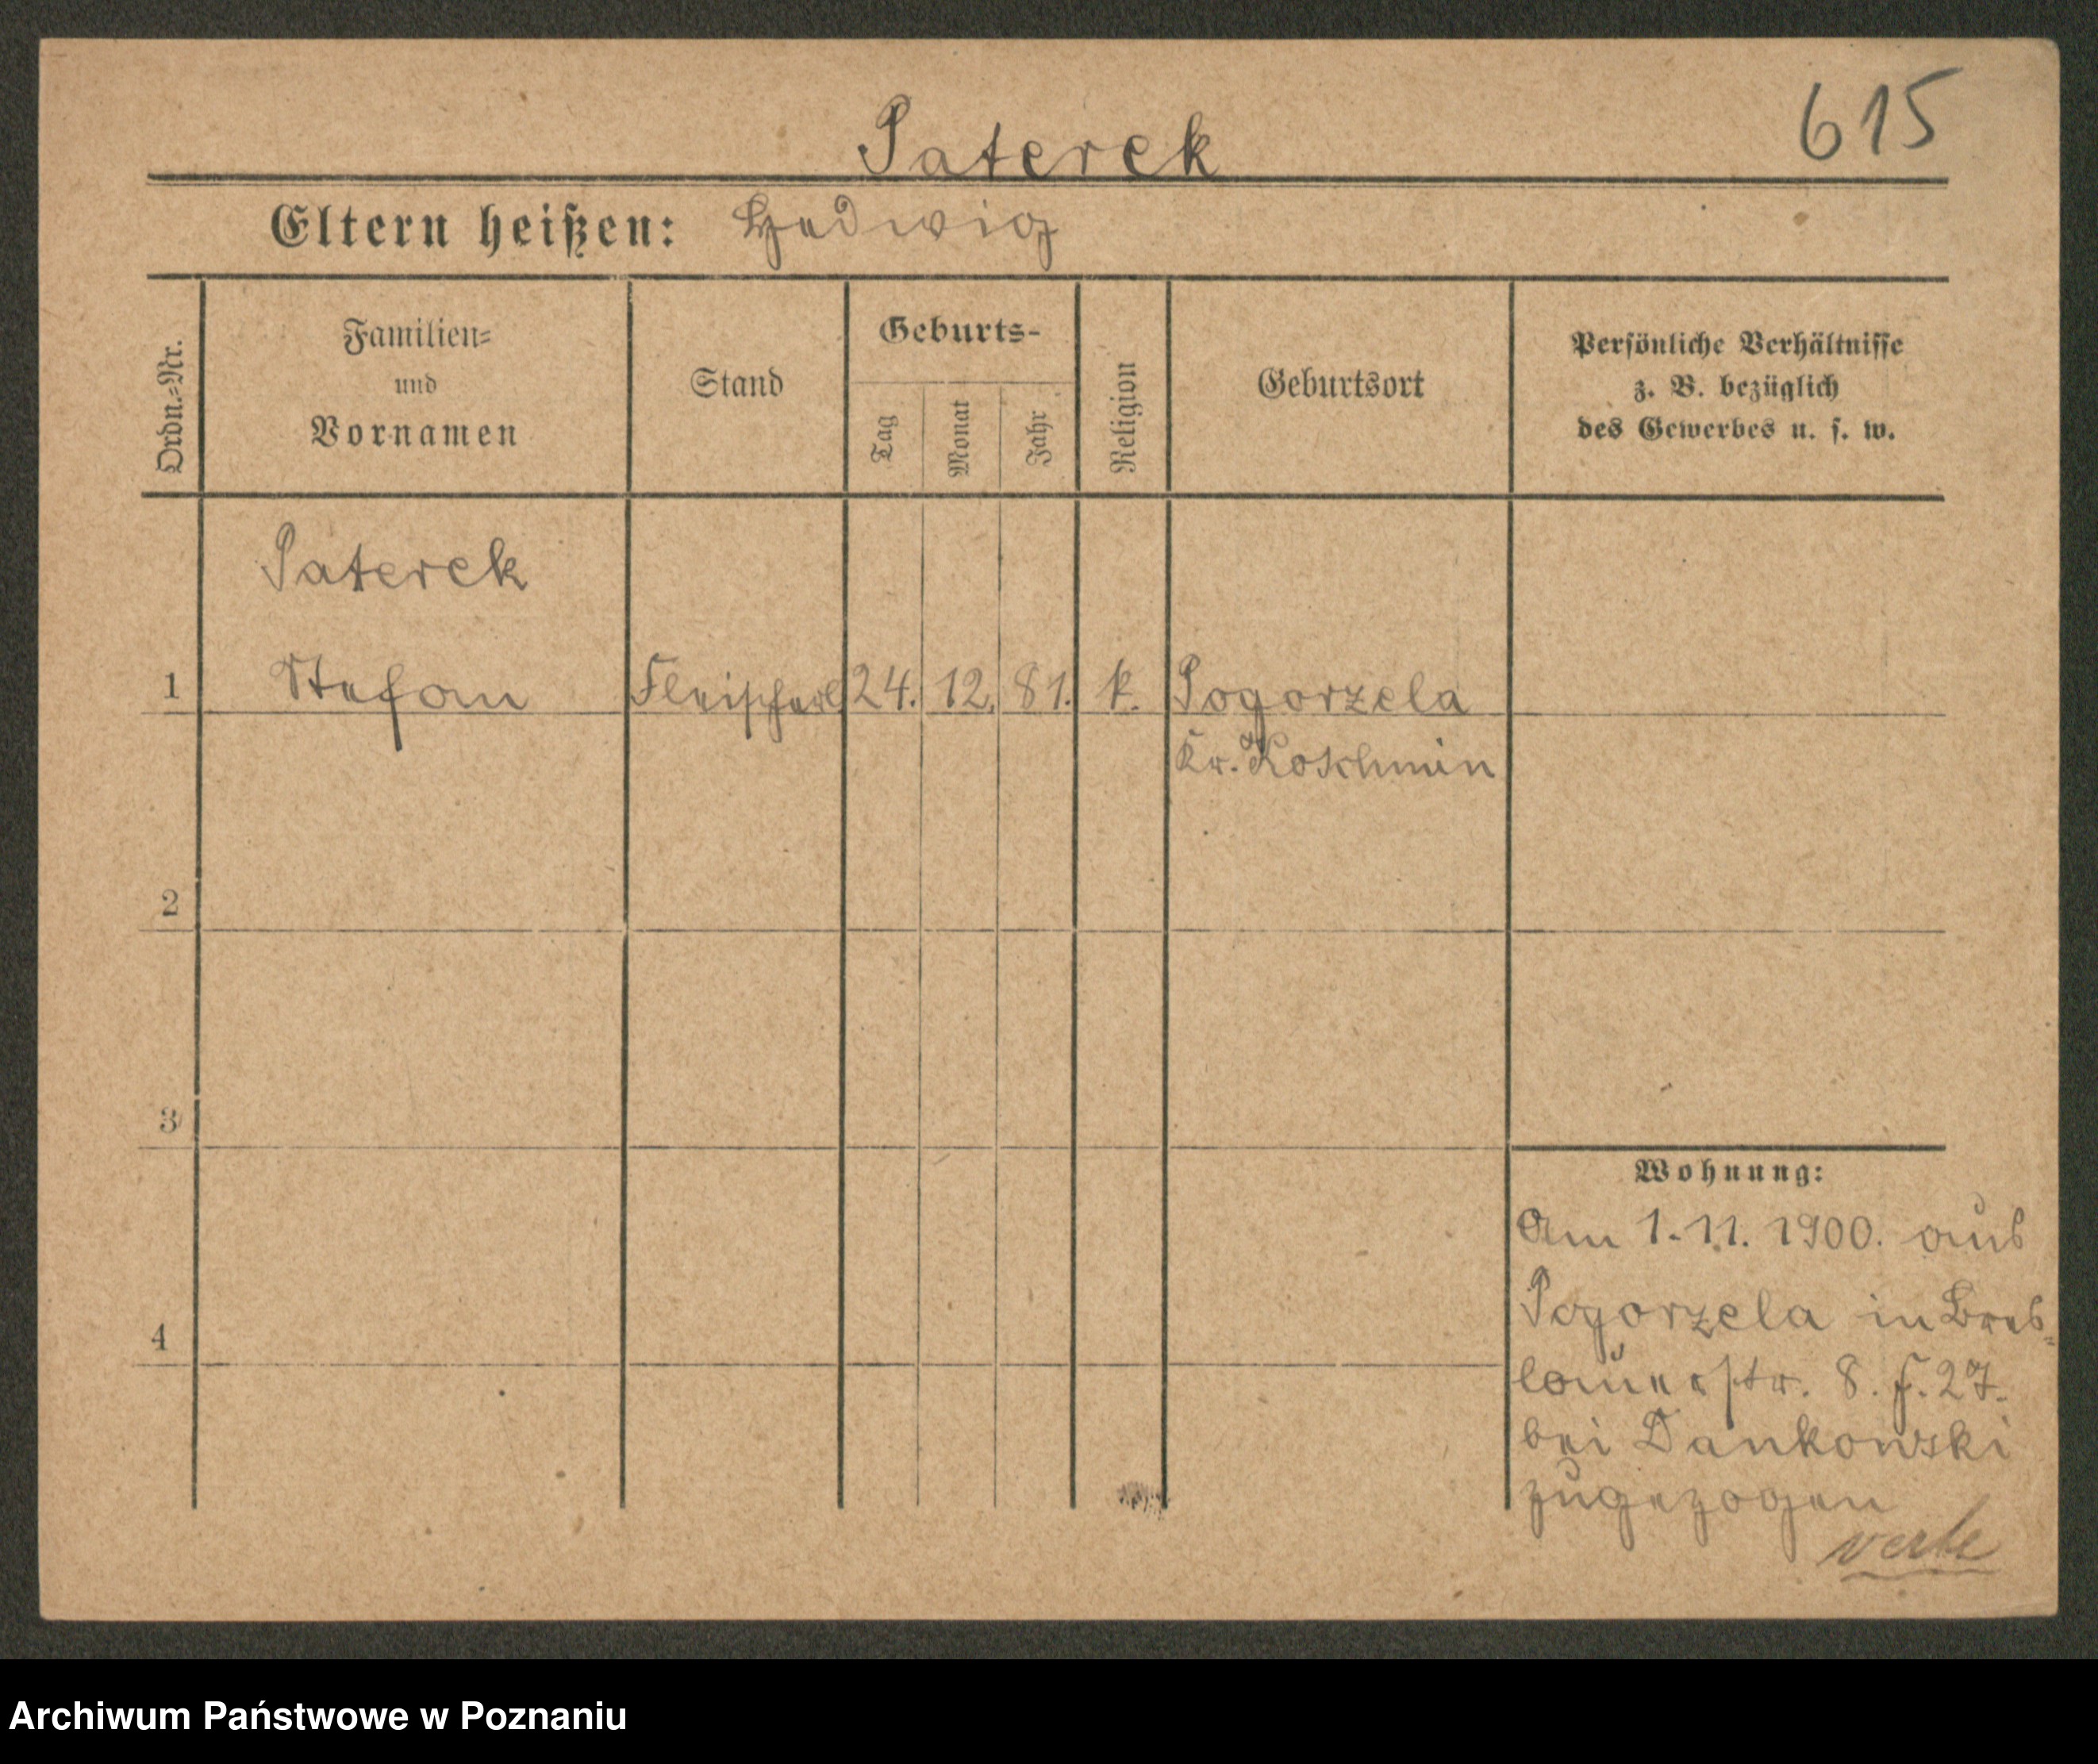 615
Paterek
Eltern heißen: Hedwig
Ordn.-Nr.
Familien-
und
Vornamen
Stand
Geburts-
Tag
Monat
Jahr
Religion
Geburtsort
Persönliche Verhältnisse
z. B. bezüglich
des Gewerbes u. s. w.
Paterek
1 Stefan 24. 12. 81. k. Pogorzela
Kr. Koschmin
2
3
4
Wohnung:
Am 1.11.1900. aus
Pogorzela in Bres-
lauerstr. 8. f. 27.
bei Dankowski
zugezogen